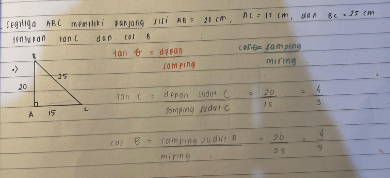 Segitiga ABC memiliki panjang sisi AB = 20 cm, AC = 15 cm, dan BC = 25 cm
tentukan tan C dan cos B
tan θ = depan / samping
cos θ = samping / miring
B
25
20
A 15 C
tan C = depan sudut C / samping sudut C = 20 / 15 = 4 / 3
cos B = samping sudut B / miring = 20 / 25 = 4 / 5